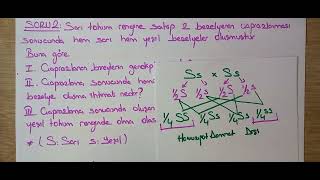 SORU 2: Sarı tohum rengine sahip 2 bezelyenin çaprazlanması
sonucunda hem sarı hem yeşil bezelyeler oluşmuştur
Buna göre
I. Çaprazlanan bireylerin genotip
II. Çaprazlama sonucunda
bezelye oluşma ihtimali nedir?
III. Çaprazlama sonucunda oluşan
yeşil tohum renginde olma olas
* ( S: Sarı s: Yeşil )
Ss x Ss
1/2 S 1/2 s 1/2 S 1/2 s
1/4 SS 1/4 Ss 1/4 Ss 1/4 ss
Homozigot Dominant Dişi